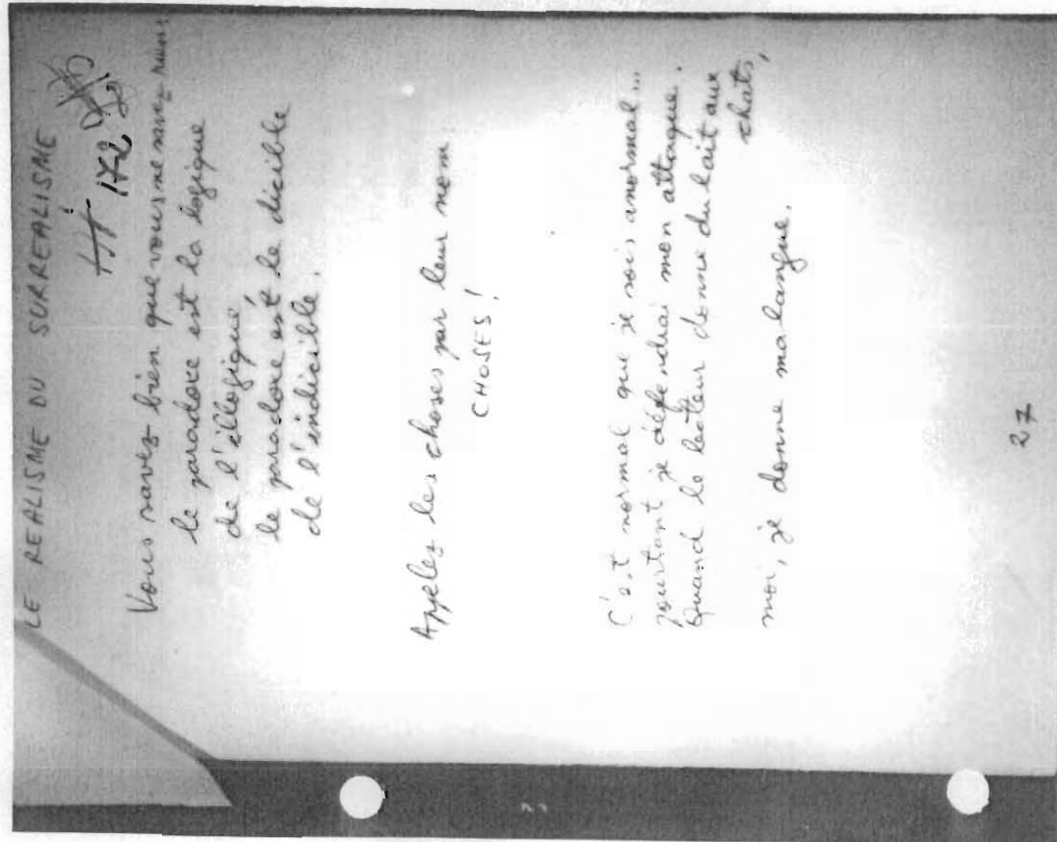 LE REALISME DU SURREALISME
172
Vous savez bien que vous ne savez rien
le paradoxe est la logique
de l'illogique,
le paradoxe est le dicible
de l'indicible.
Appelez les choses par leur nom
CHOSES!
C'est normal que je sois anormal...
pourtant je défendrai mon attaque.
Quand le lecteur donne du lait aux
chats,
moi, je donne ma langue.
27